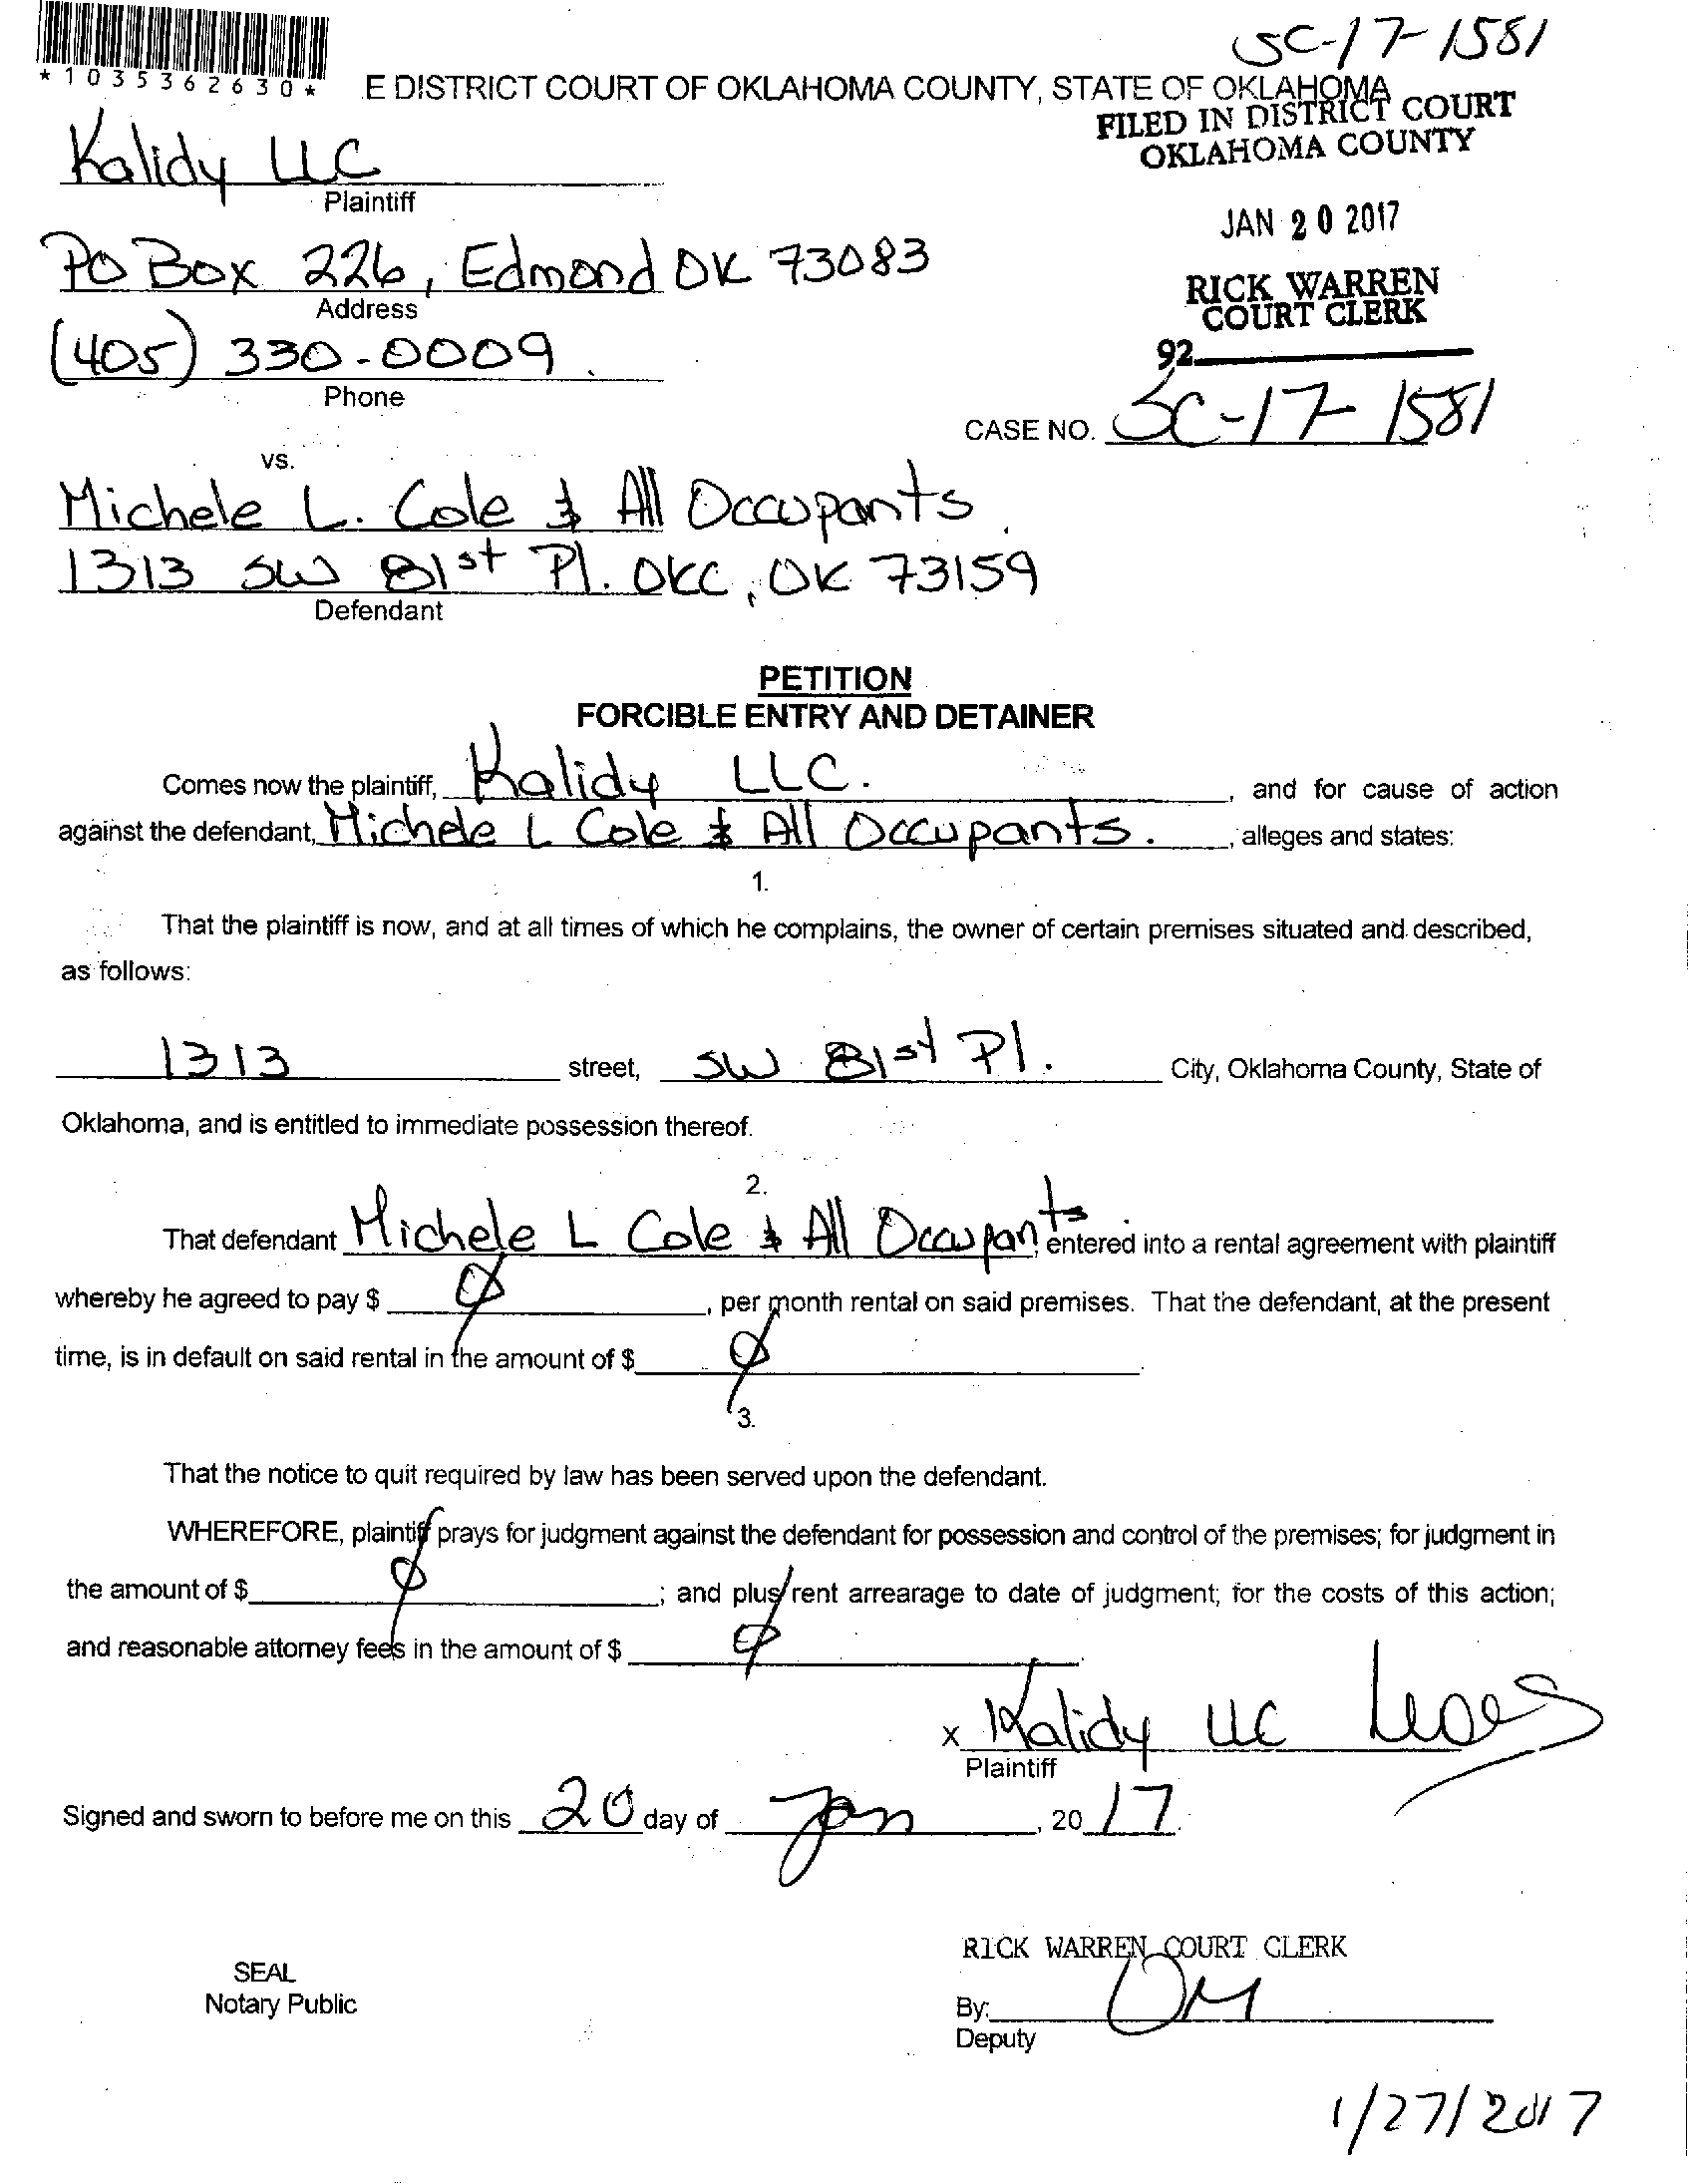 SC-17-1581
*1035362630*
E DISTRICT COURT OF OKLAHOMA COUNTY, STATE OF OKLAHOMA
FILED IN DISTRICT COURT
OKLAHOMA COUNTY
Kalidy LLC
Plaintiff
JAN 20 2017
PO Box 226, Edmond OK 73083
Address
RICK WARREN
COURT CLERK
(405) 330-0009
Phone
92
CASE NO. SC-17-1581
vs.
Michele L. Cole & All Occupants
1313 SW 81st Pl. OKC, OK 73159
Defendant
PETITION
FORCIBLE ENTRY AND DETAINER
Comes now the plaintiff, Kalidy LLC. , and for cause of action
against the defendant, Michele L Cole & All Occupants. , alleges and states:
1.
That the plaintiff is now, and at all times of which he complains, the owner of certain premises situated and described,
as follows:
1313 street, SW 81st Pl. City, Oklahoma County, State of
Oklahoma, and is entitled to immediate possession thereof.
2.
That defendant Michele L Cole & All Occupants, entered into a rental agreement with plaintiff
whereby he agreed to pay $ Ø , per month rental on said premises. That the defendant, at the present
time, is in default on said rental in the amount of $ Ø .
3.
That the notice to quit required by law has been served upon the defendant.
WHEREFORE, plaintiff prays for judgment against the defendant for possession and control of the premises; for judgment in
the amount of $ Ø ; and plus rent arrearage to date of judgment; for the costs of this action;
and reasonable attorney fees in the amount of $ Ø .
x Kalidy LLC
Plaintiff
Signed and sworn to before me on this 20 day of Jan , 20 17.
RICK WARREN COURT CLERK
SEAL
Notary Public
By:
Deputy
1/27/2017